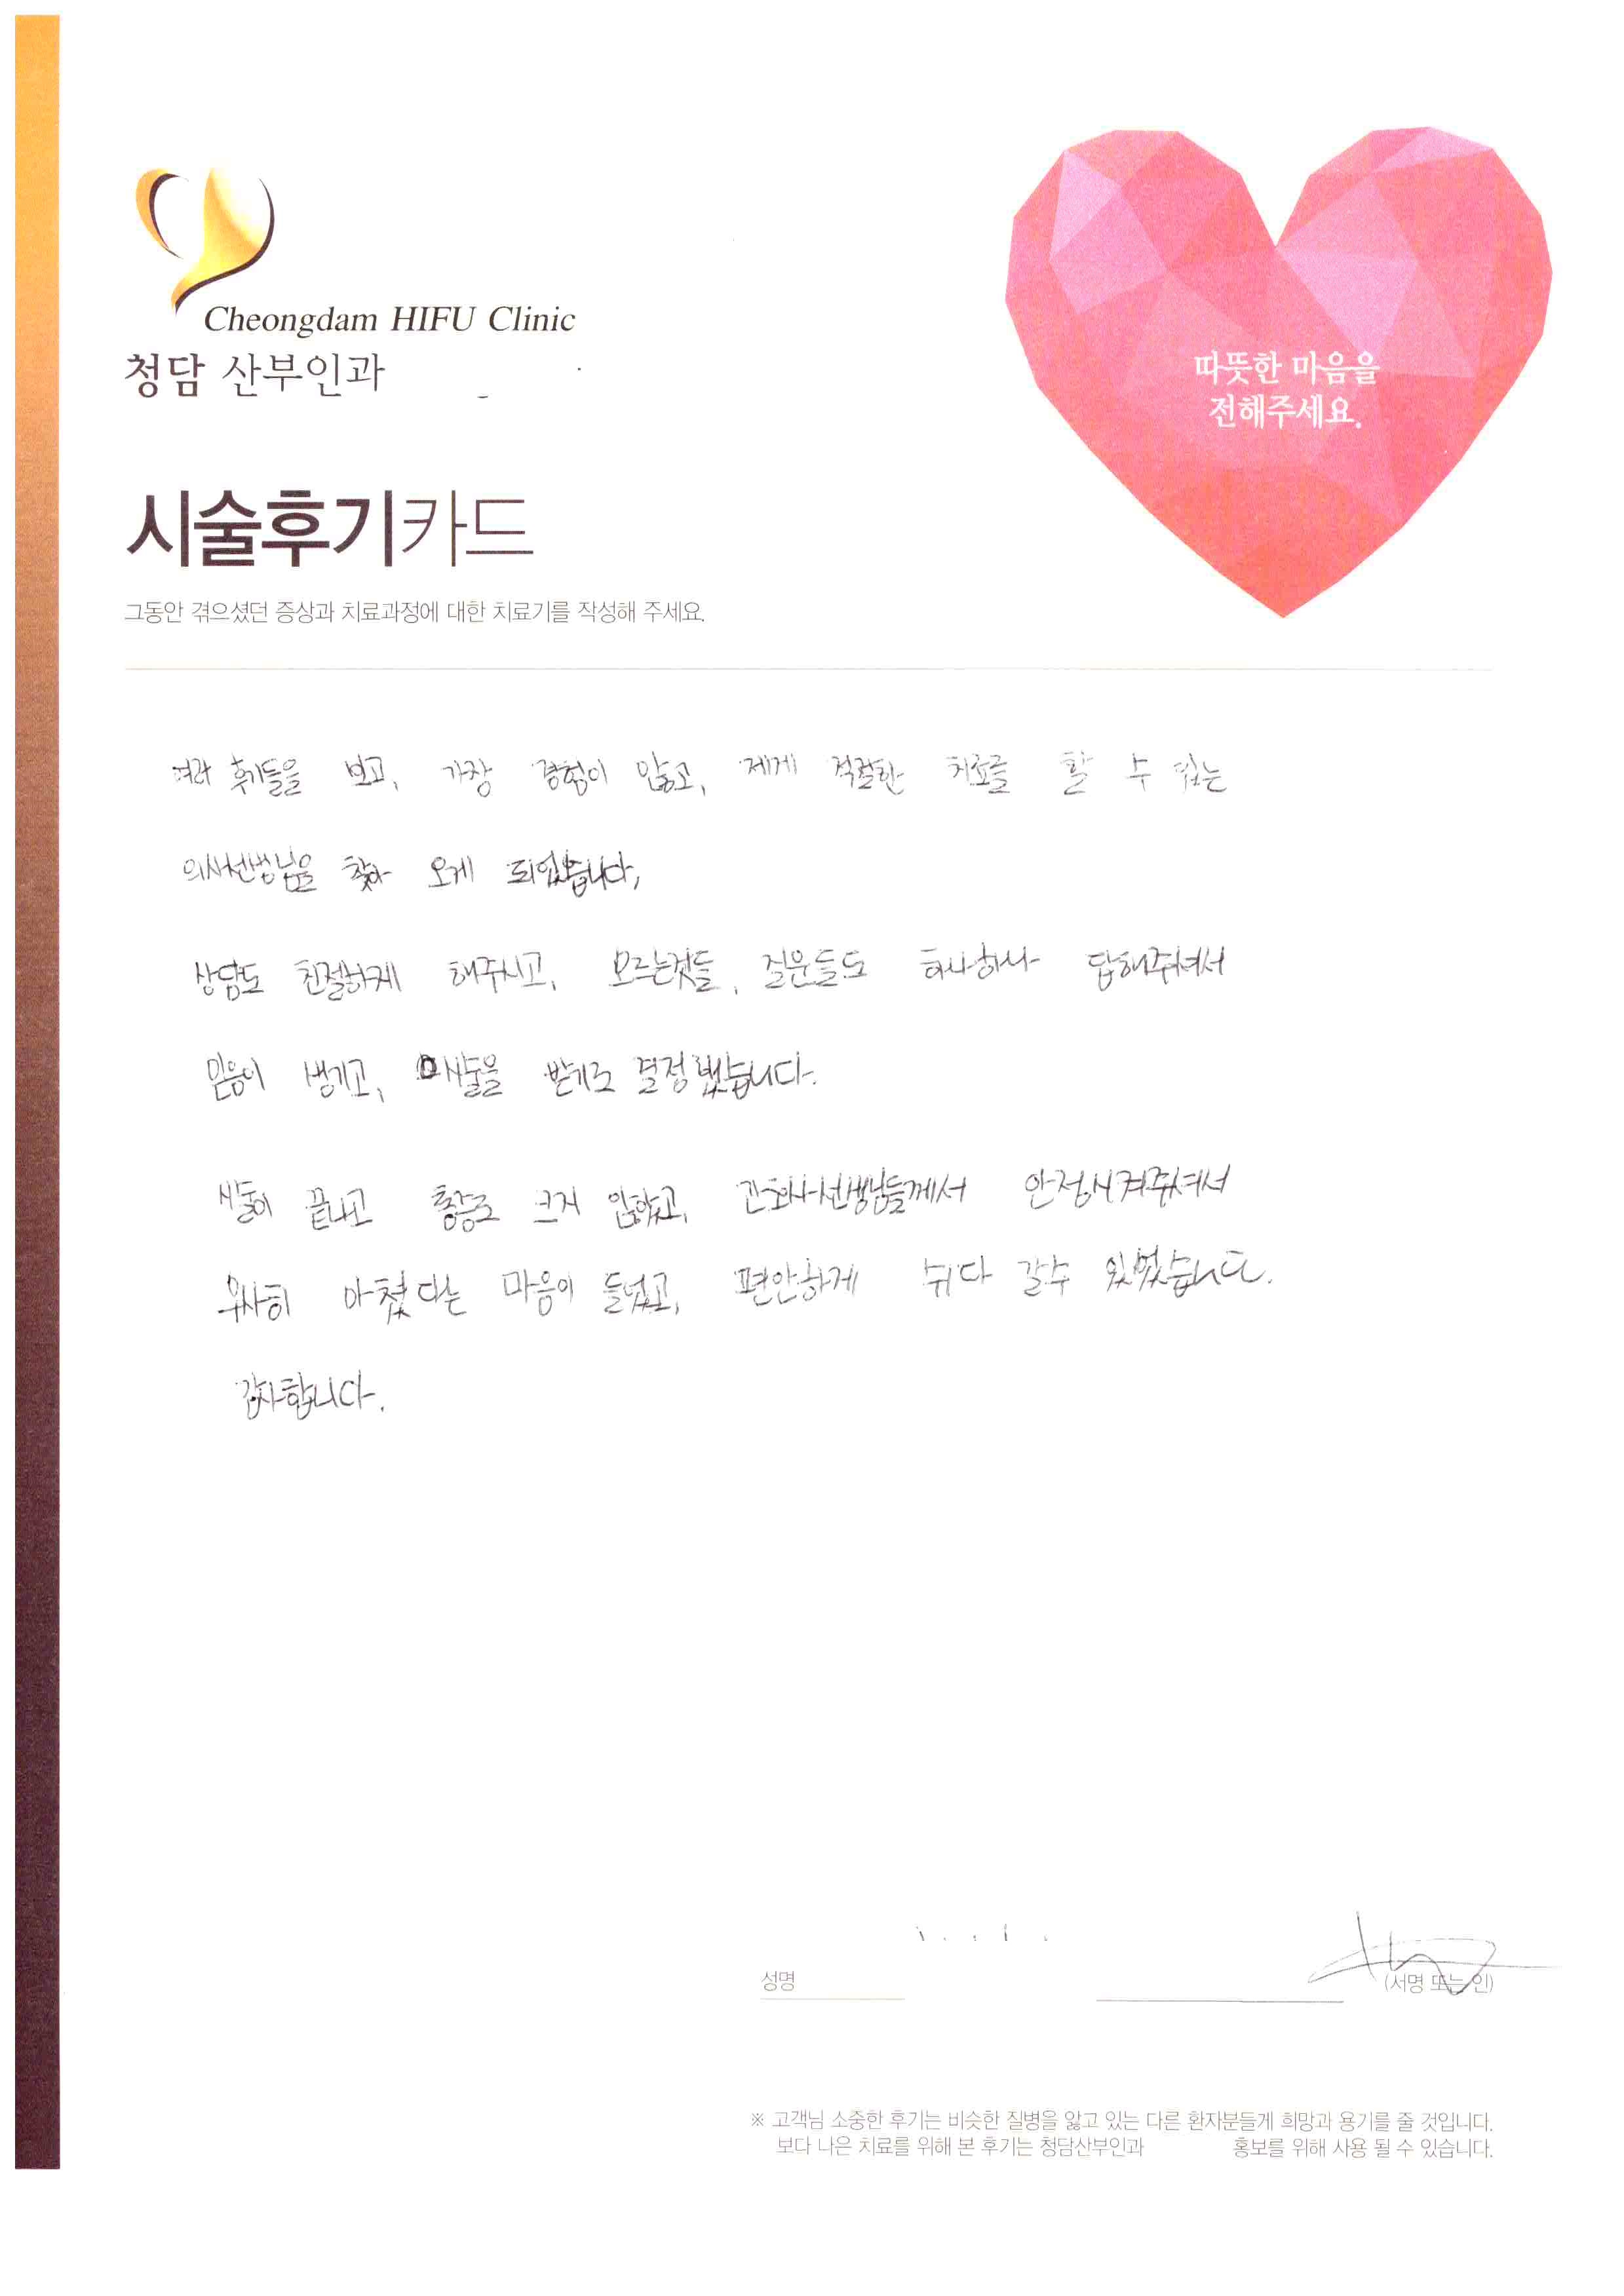 Cheongdam HIFU Clinic
청담 산부인과
따뜻한 마음을
전해주세요.
시술후기카드
그동안 겪으셨던 증상과 치료과정에 대한 치료기를 작성해 주세요.
여러 후기들을 보고, 가장 경험이 많고, 제게 적절한 치료를 할 수 있는
의사선생님을 찾아 오게 되었습니다,
상담도 친절하게 해주시고, 모르는것들, 질문들도 하나하나 답해주셔서
믿음이 생기고, 시술을 받기로 결정했습니다.
시술이 끝나고 통증도 크지 않았고, 간호사선생님들께서 안정시켜주셔서
무사히 마쳤다는 마음이 들었고, 편안하게 쉬다 갈수 있었습니다.
감사합니다.
성명
(서명 또는 인)
※ 고객님 소중한 후기는 비슷한 질병을 앓고 있는 다른 환자분들게 희망과 용기를 줄 것입니다.
보다 나은 치료를 위해 본 후기는 청담산부인과 홍보를 위해 사용 될 수 있습니다.